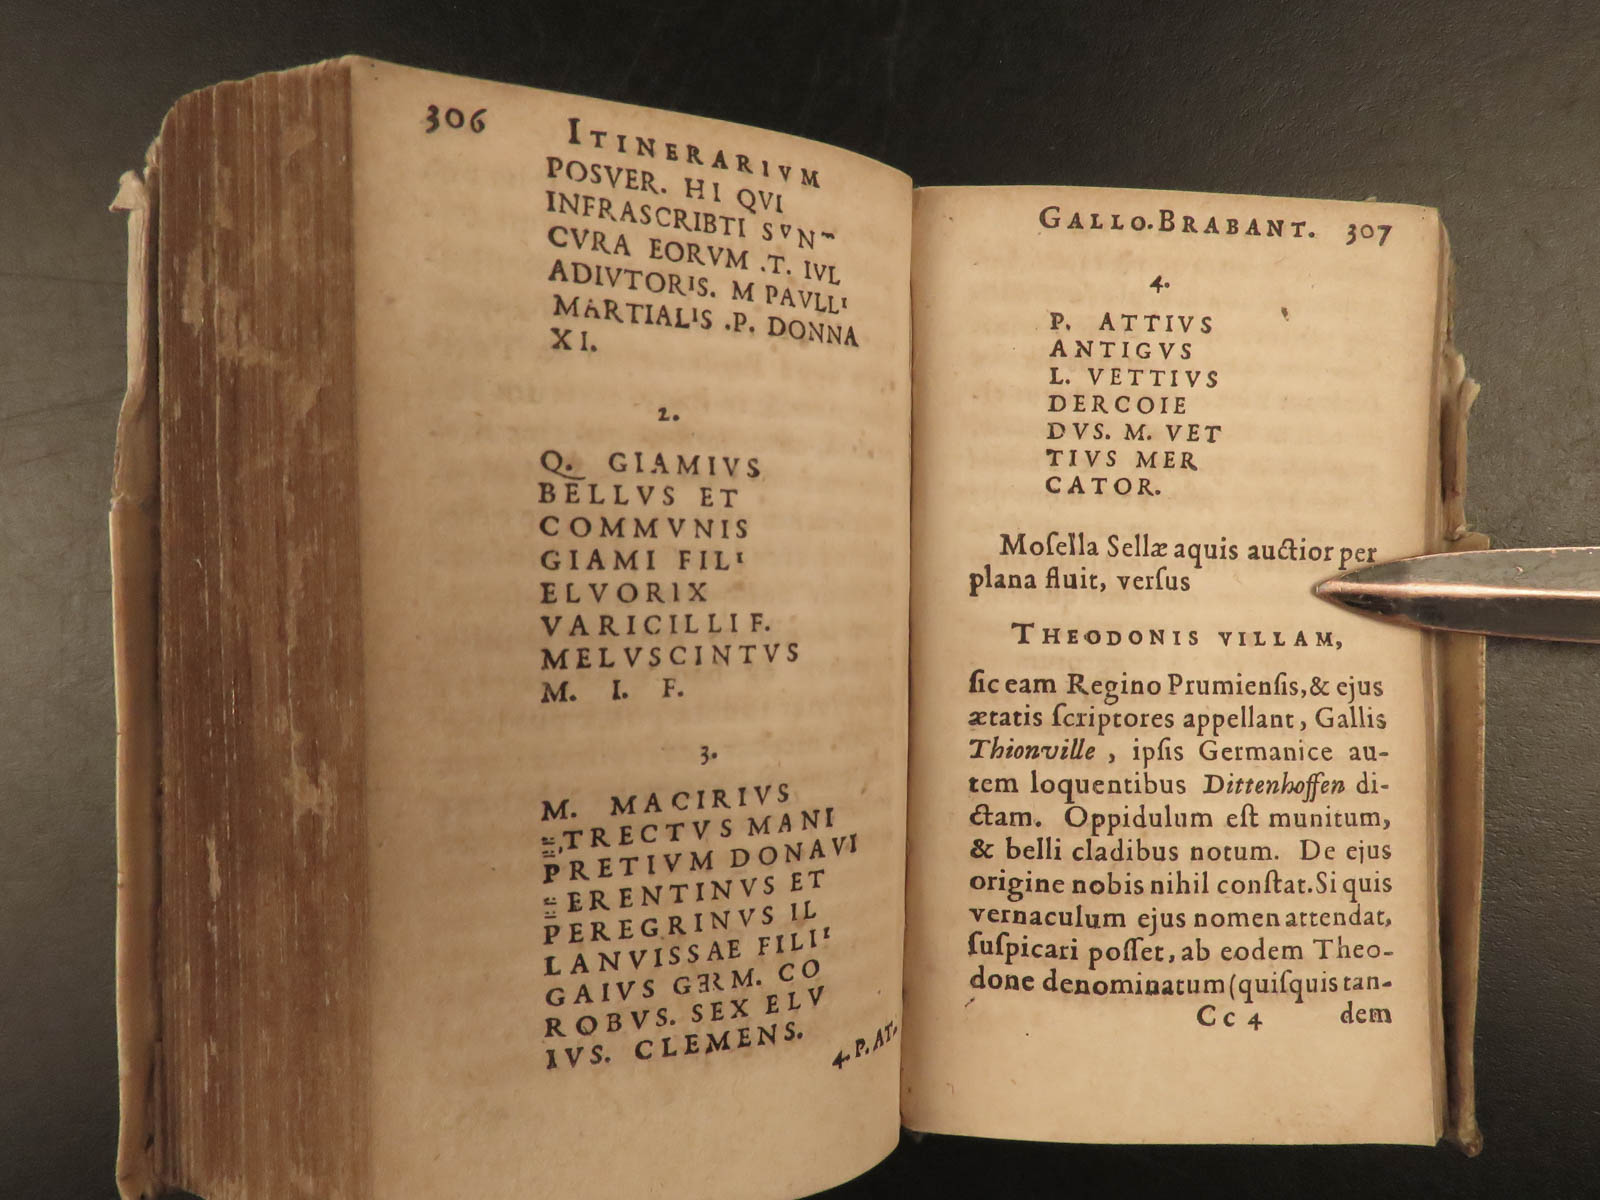 306 ITINERARIVM
POSVER. HI QVI
INFRASCRIBTI SVN
CVRA EORVM .T. IVL
ADIVTORIS. M PAVLLI
MARTIALIS .P. DONNA
XI.
2.
Q. GIAMIVS
BELLVS ET
COMMVNIS
GIAMI FILI
ELVORIX
VARICILLI F.
MELVSCINTVS
M. I. F.
3.
M. MACIRIVS
TRECTVS MANI
PRETIVM DONAVI
ERENTINVS ET
PEREGRINVS IL
LANVISSAE FILII
GAIVS GƎRM. CO
ROBVS. SEX ELV
IVS. CLEMENS.
4. P. AT.
GALLO.BRABANT. 307
4.
P. ATTIVS
ANTIGVS
L. VETTIVS
DERCOIE
DVS. M. VET
TIVS MER
CATOR.
Moſella Sellæ aquis auctior per
plana fluit, verſus
THEODONIS VILLAM,
ſic eam Regino Prumienſis, & ejus
ætatis ſcriptores appellant, Gallis
Thionville, ipſis Germanice au-
tem loquentibus Dittenhoffen di-
ctam. Oppidulum eſt munitum,
& belli cladibus notum. De ejus
origine nobis nihil conſtat. Si quis
vernaculum ejus nomen attendat,
ſuſpicari poſſet, ab eodem Theo-
done denominatum (quiſquis tan-
Cc 4 dem